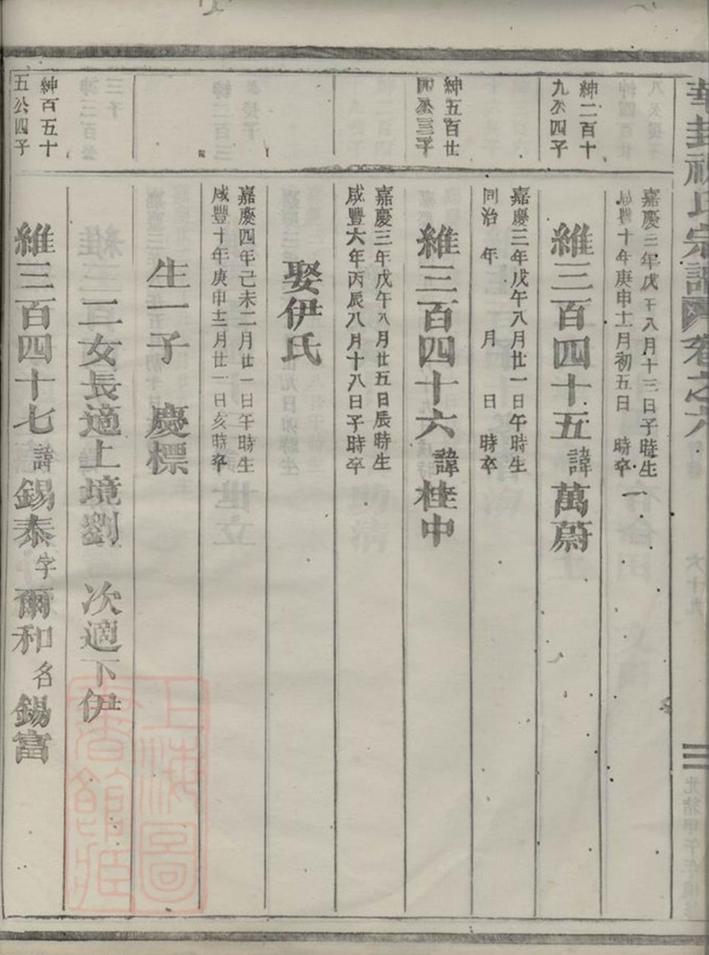 華封祝氏宗譜 卷之六
嘉慶三年戊午八月十三日子時生
咸豐十年庚申十一月初五日 時卒
紳二百十
九公四子
維三百四十五諱萬蔚
嘉慶三年戊午八月廿一日午時生
同治 年 月 日 時卒
紳五百廿
四公三子
維三百四十六諱桂中
嘉慶三年戊午八月廿五日辰時生
咸豐六年丙辰八月十八日子時卒
娶伊氏
嘉慶四年己未二月廿一日午時生
咸豐十年庚申十二月廿一日亥時卒
生一子 慶標
二女長適上境劉 次適下伊
紳百五十
五公四子
維三百四十七諱錫泰字爾和名錫富
上海圖
書館藏